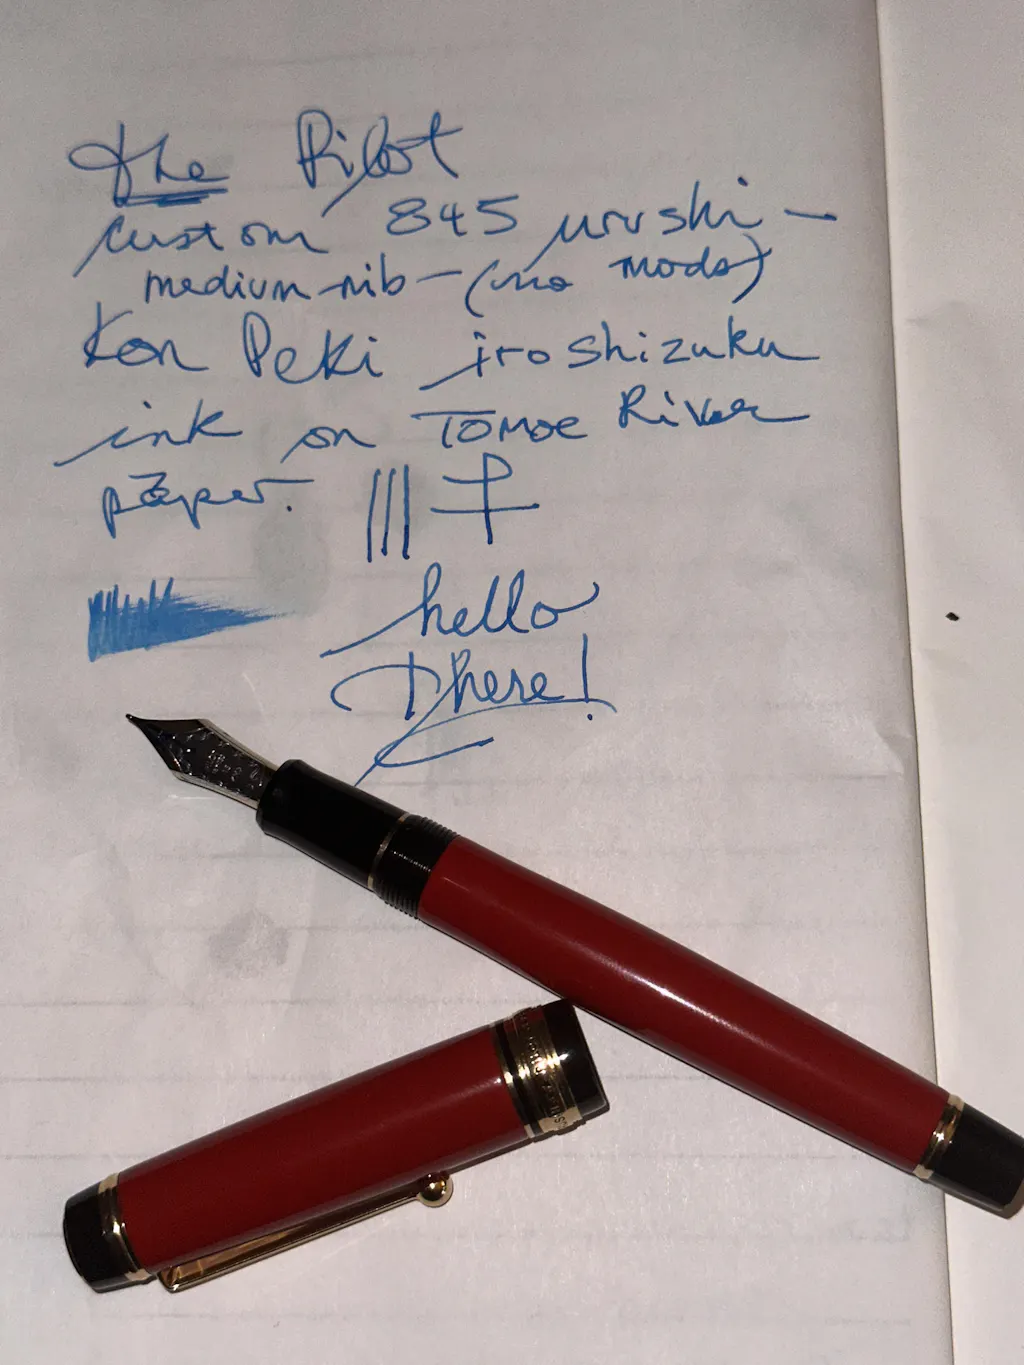 the Pilot
custom 845 urushi -
medium nib - (no mods)
Kon Peki iroshizuku
ink on Tomoe River
paper.
hello
there!